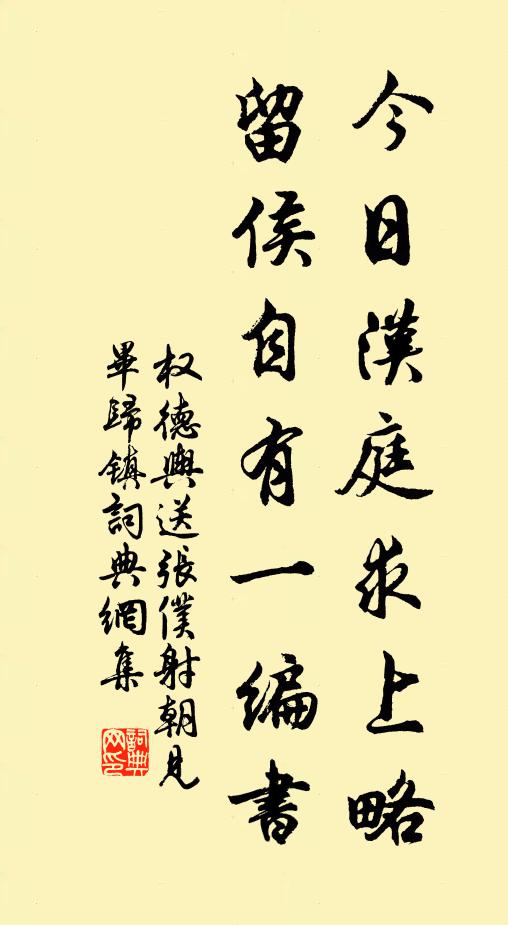 今日漢庭求上略
留侯自有一編書
权德輿送張僕射朝見
畢歸鎮詞典網集
詞典
网印